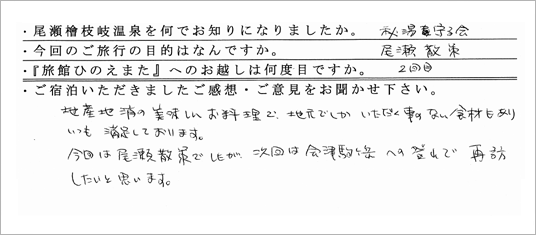 ・尾瀬檜枝岐温泉を何でお知りになりましたか。 秘湯を守る会
・今回のご旅行の目的はなんですか。 尾瀬散策
・『旅館ひのえまた』へのお越しは何度目ですか。 2回目
・ご宿泊いただきましたご感想・ご意見をお聞かせ下さい。
地産地消の美味しいお料理で、地元でしかいただく事のない食材もあり
いつも満足しております。
今回は尾瀬散策でしたが、次回は会津駒ヶ岳への登山で再訪
したいと思います。